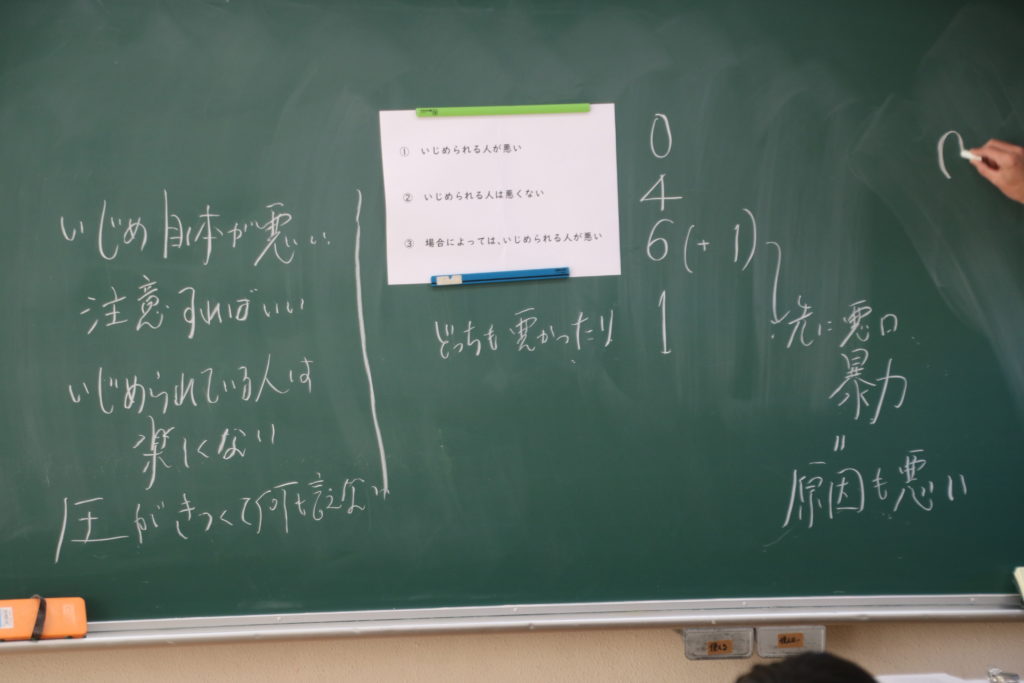 いじめ自体が悪い
注意すればいい
いじめられている人は
楽しくない
圧がきつくて何も言えない
① いじめられる人が悪い
② いじめられる人は悪くない
③ 場合によっては、いじめられる人が悪い
0
4
6(+1)
どっちも悪かったり 1
先に悪口
暴力
〃
原因も悪い
使える